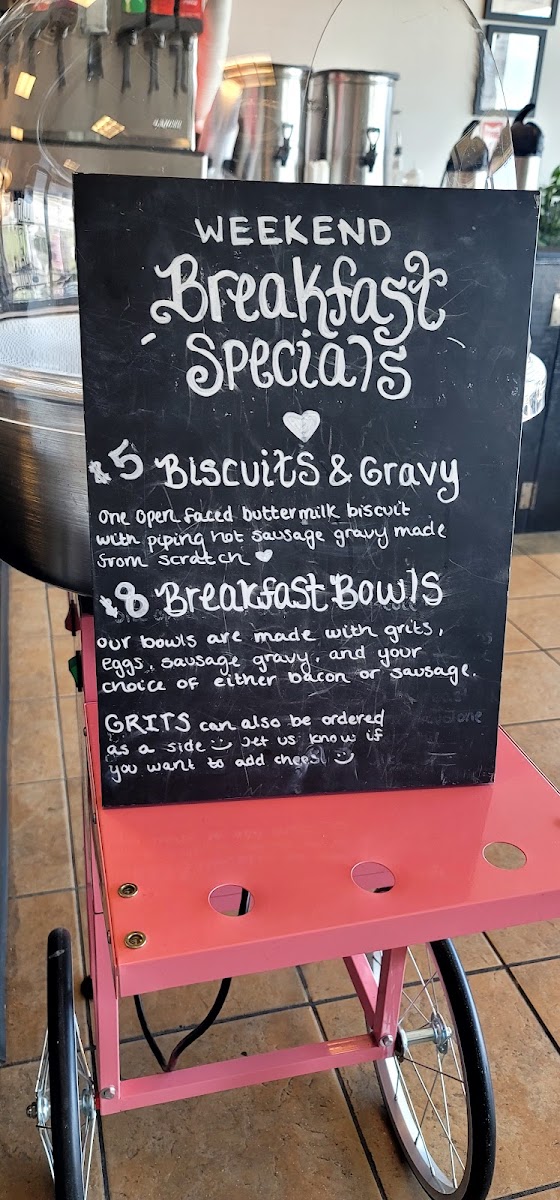 LANCER
WEEKEND
Breakfast
Specials
$5 Biscuits & Gravy
One open faced buttermilk biscuit
with piping hot sausage gravy made
from scratch
$8 Breakfast Bowls
our bowls are made with grits,
eggs, sausage gravy, and your
choice of either bacon or sausage.
GRITS can also be ordered
as a side Let us know if
you want to add